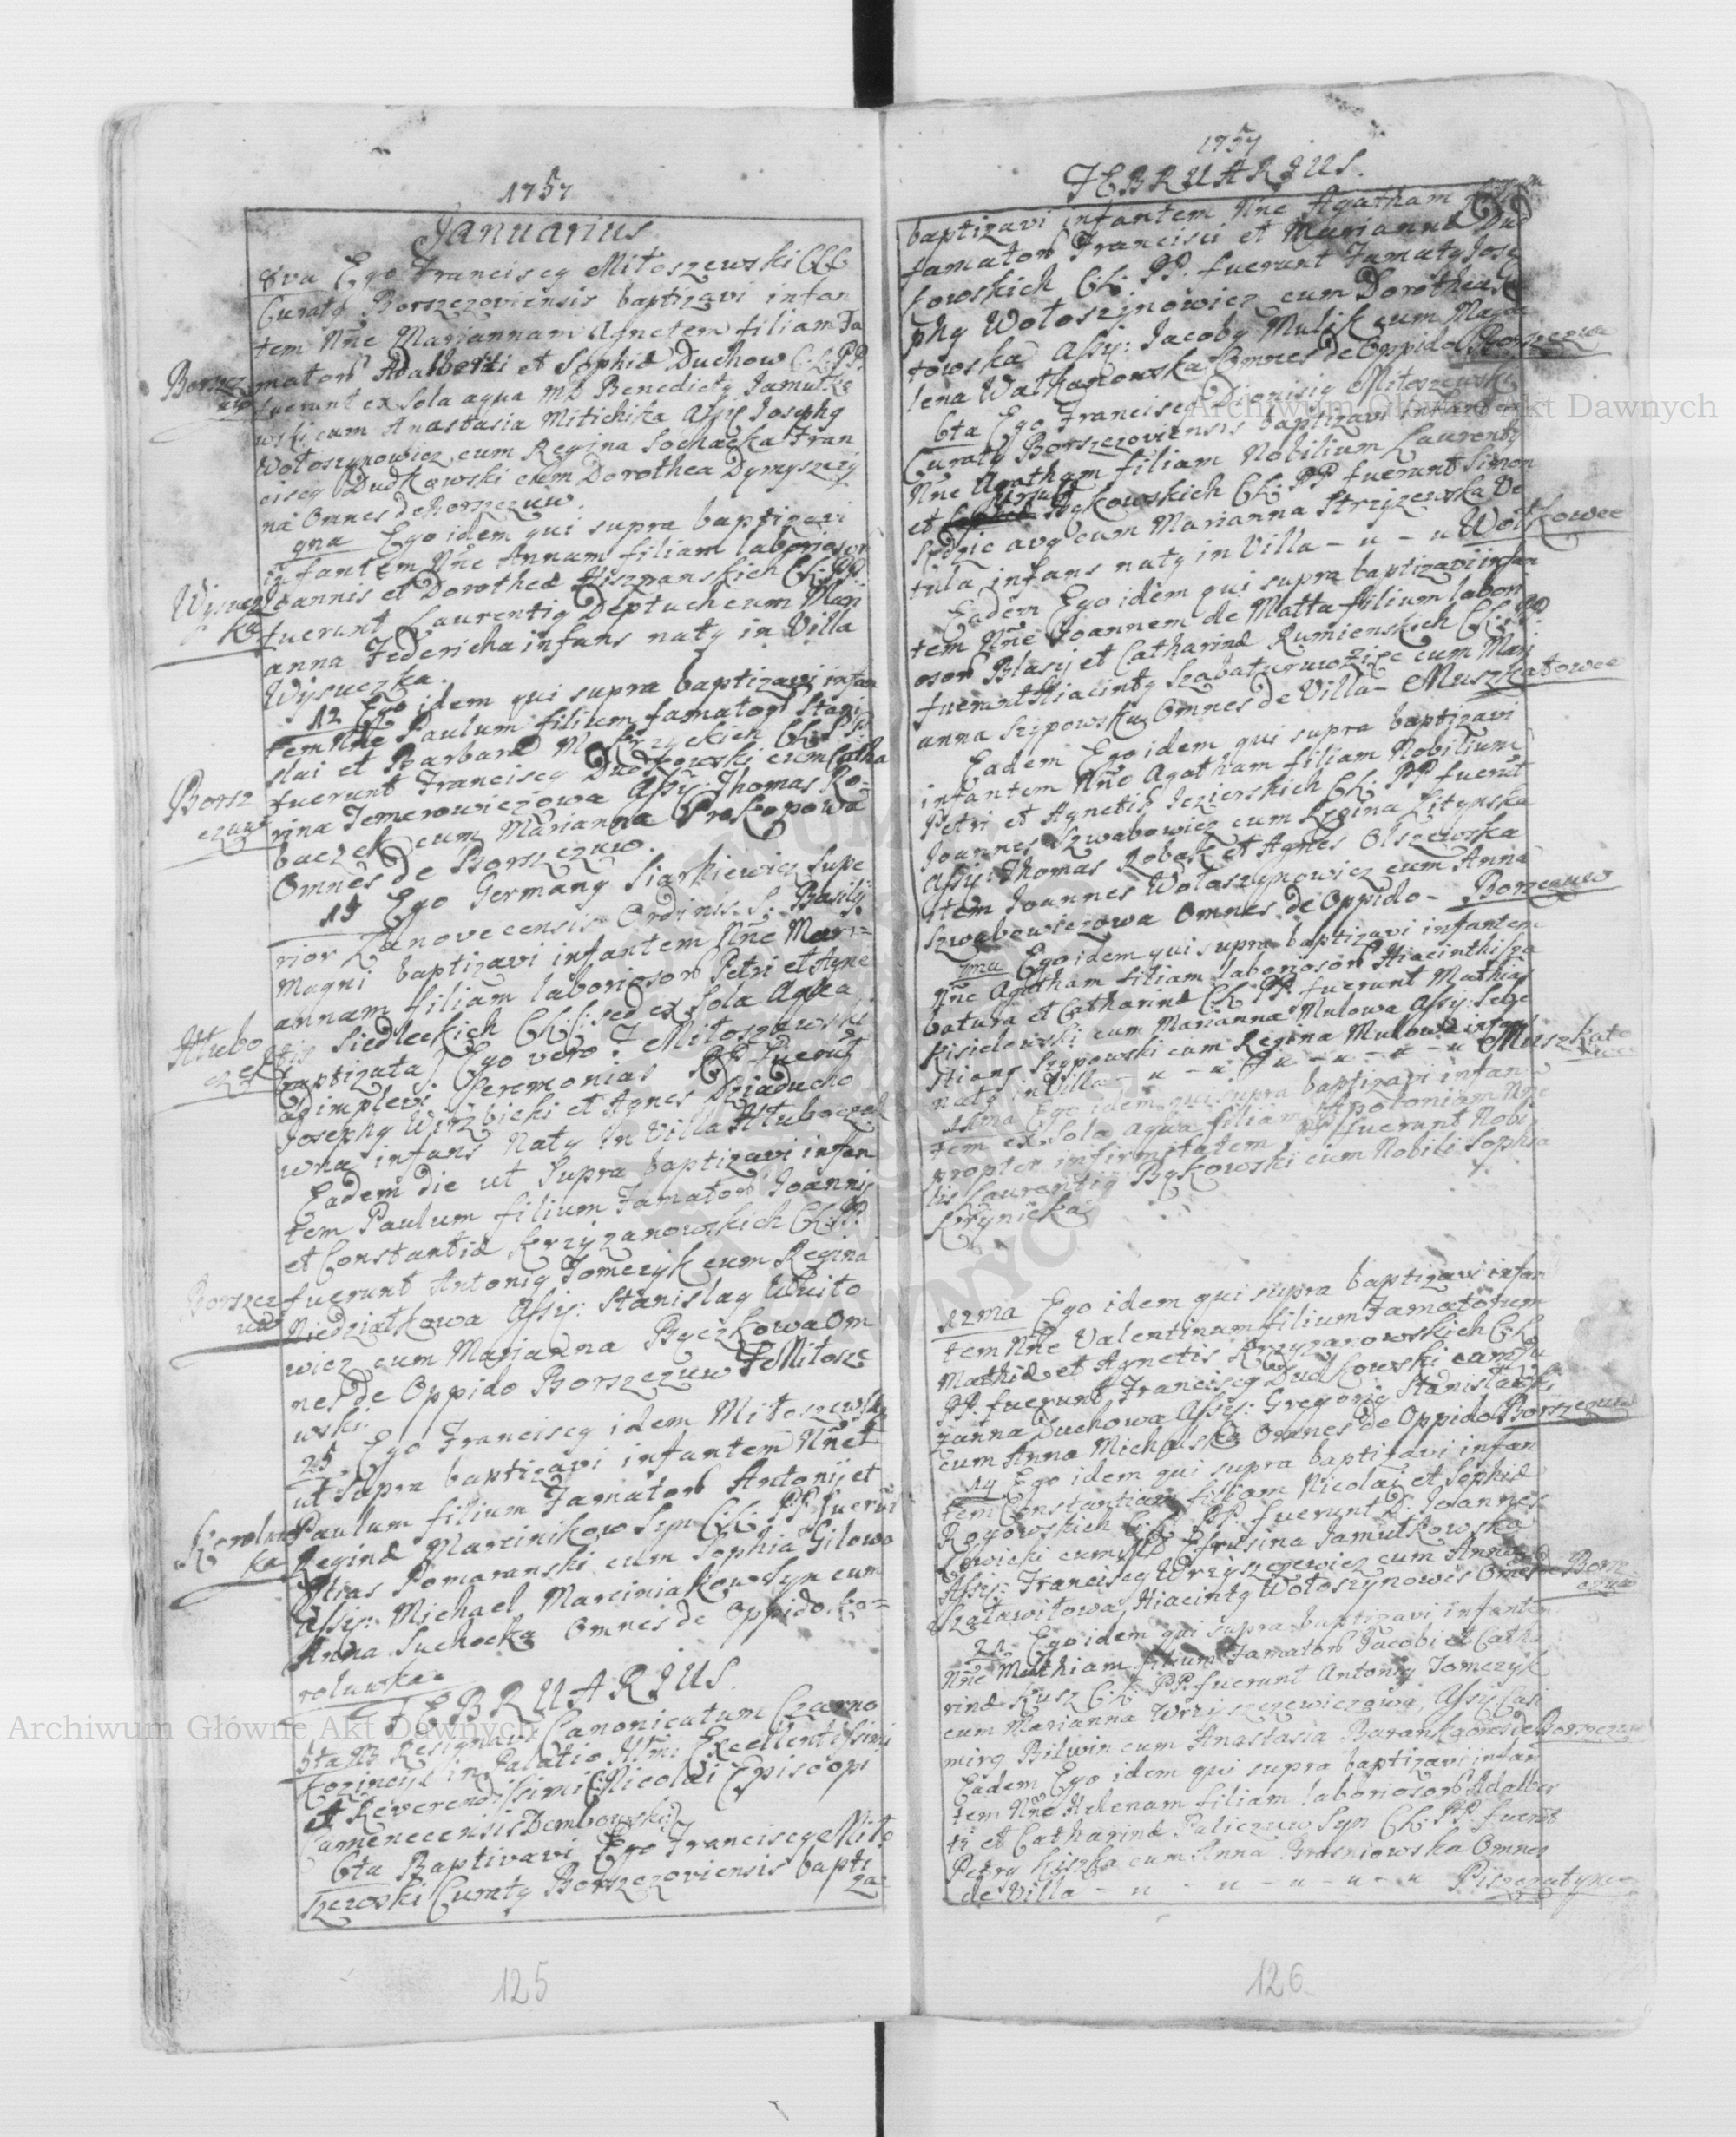 1757
Januarius
8va Ego Franciscq Miłoszewski CCC
Curatq Borszczoviensis baptizavi infan
tem Nñe Mariannam Agnetem filiam Fa
mator Adalberti et Sophiæ Duchow C:L:PP.
fuerunt ex sola aqua MD Benedictq Jamułko
wski cum Anastasia Mitichika Assis Josephq
Wołoszynowicz cum Regina Sochacka Fran
ciscq Dudkowski cum Dorothea Dymyszczy
na Omnes de Borszczuw.
Borszcz
uw
9na Ego idem qui supra baptizavi
infantem Nñe Annam filiam laborioson
Joannis et Dorotheæ Hiszpanskich CL:PP.
fuerunt Laurentiq Deptuch cum Mari
anna Federicha infans natq in Villa
Wysuczka.
Wysucz
ka
12 Ego idem qui supra baptizavi infan
tem Nñe Paulum filium famator Stani
slai et Barbaræ Mokrzyckich CL:PP:
fuerunt Franciscq Dudkowski cum Catha
rina Jemerowiczowa Assis: Thomas Ro-
baczek cum Marianna Prokopowa
Omnes de Borszczuw.
Borsz
czuw
15 Ego Germanq Siarkiewicz Supe
rior Zanovecensis Ordinis S. Basilij
Magni baptizavi infantem Nñe Mari=
annam filiam laborioson Petri et Agne
tis Siedleckich CL(: sed ex sola Aqua
baptizata) Ego vero F Miłoszewski
adimplevi Ceremonias PP. Fuerut
Josephq Wirzbicki et Agnes Dziaducho
wna infans Natq in Villa Hłuboczek
Hłubo
czek
Eadem die ut Supra baptizavi infan
tem Paulum filium Famator Joannis
et Constantiæ Krzyzanowskich CL:PP.
fuerunt Antoniq Tomczyk cum Regina
Niedziałkowa Assis: Stanislaq Witto
wicz cum Marianna Bączkowa Om
nes de Oppido Borszczuw F Miłosze
wski.
Borszcz
uw
25 Ego Franciscq idem Miłoszewski
ut supra baptizavi infantem Nñe
Paulum filium Famator Antonij et
Reginæ Marcinikow Syn C:L: PP. fuerut
Pomaranski cum Sophia Gilowa
Assis: Michael Marciniakow Syn cum
Anna Suchocka Omnes de Oppido Ko=
roluwka
Koroluw
ka
FEBRUARIUS.
5ta Resignavi Canonicatum Czarno
kozincij in Palatio Illmi Excellentissimi
et Reverendissimi Nicolai Episcopi
Camenecensis Dembowski
6ta Baptivavi Ego Franciscq Miło
szewski Curatq Borszczoviensis bapti
za-
125
1757
FEBRUARIUS.
baptizavi infantem Nñe Agatham filiam
famator Francisci et Mariannæ Dud
kowskich CL: PP. fuerunt Famatq Jose
phq Wołoszynowicz cum Dorothea
towska Assis: Jacobq Mulik cum Magda
lena Wathanowska Omnes de Oppido Borszczuw
6ta Ego Franciscq Dionisiq Miłoszewski
Curatq Borszczoviensis baptizavi infantem
Nñe Agatham filiam Nobilium Laurentij
et Bąkowskich CL: PP. fuerunt Simon
Kędzic avq cum Marianna Strzyzewska Ve
tula infans natq in Villa – u – u Wołkowce
Eadem Ego idem qui supra baptizavi infan
tem Nñe Joannem de Matta filium labori
oson Blasij et Catharinæ Rumienskich CL:PP.
fuerunt Hiacintq Szabaturuw Zięc cum Mari
anna Szypowska Omnes de Villa – Muszkatowce
Eadem Ego idem qui supra baptizavi
infantem Nñe Agatham filiam Nobilium
Petri et Agnetis Jezierskich CL: PP. fuerut
Joannes Szwabowicz cum Regina Zitynska
Assis: Thomas Robak et Agnes Olszewska
item Joannes Wołoszynowicz cum Anna
Szwabowiczowa Omnes de Oppido – Borszczuw
7ma Ego idem qui supra baptizavi infantem
Nñe Agatham filiam laborioson Hiacinthi Sza
batura et Catharinæ CL: PP. fuerunt Mathias
Kisielowski cum Marianna Mulowa Assis: Seba
stianq Szypowski cum Regina Mulowa infans
natq in Villa – u – u – u – u – u Muszkato
wce
11ma Ego idem qui supra baptizavi infan
tem ex Sola Aqua filiam Apoloniam Nñe
propter infirmitatem PP fuerunt Nobi
lis Laurentiq Bąkowski cum Nobili Sophia
Krynicka
12ma Ego idem qui supra baptizavi infan
tem Nñe Valentinum filium Famatorum
Mathiæ et Agnetis Krzyzanowskich CL
PP. fuerunt Franciscq Dudkowski cum Zu
zanna Duchowa Assis: Gregoriq Stanisławski
cum Anna Michalska Omnes de Oppido Borszczuw
14 Ego idem qui supra baptizavi infan
tem Constantiam filiam Nicolai et Sophiæ
Rogowskich CL PP. fuerunt D: Joannes
Łowicki cum MD Efrusina Jamułkowska
Assis: Franciscq Wrzyszczewicz cum Anna
Szaławiłowa, Hiacintq Wołoszynowic Omes de Borsz
czuw
21. Ego idem qui supra baptizavi infantem
Nñe Mathiam filium Famator Jacobi et Catha
rinæ Kusz CL: PP. fuerunt Antoniq Tomczyk
cum Marianna Wrzyszczewiczowa, Assis Casi
mirq Bilwin cum Anastasia Baranka Omes de Borszczuw
Eadem Ego idem qui supra baptizavi infan
tem Nñe Helenam filiam laborioson Adalber
ti et Catharinæ Paliczuw Syn CL PP. fuerut
Petrq Kiszka cum Anna Brasniowska Omnes
de Villa – u – u – u – u – u Piszczatynce
126
Archiwum Główne Akt Dawnych
Archiwum Główne Akt Dawnych